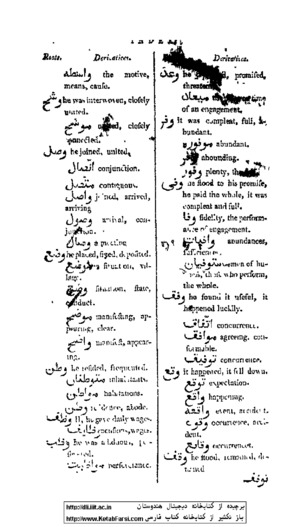 INDEX.
Roots. Derivatives.
واسطه the motive,
means, cause.
وشح he was interwoven, closely
united.
موشح closely
connected.
وصل he joined, united,
اتصال conjunction.
متصل contiguous.
واصل joined, arrived,
arriving
وصول arrival, con-
junction.
وضع he placed, fixed, deposited.
موضع situation, vil-
lage.
وضع situation, state,
conduct.
موضح manifesting, ap-
pearing, clear.
واضح manifest, appear-
ing.
وطن he resided, frequented.
متوطنان inhabitants.
مواطن habitations.
وطن residence, abode.
وظف he gave daily wages.
وظايف pensions, wages.
وظب he was assiduous,
مواظبت perseverance.
Derivatives.
وعد he promised,
threatened
ميعاد time
of an engagement.
وفر it was compleat, full, a-
bundant.
موفور abundant.
وافر abounding.
وفور plenty,
وفى he stood to his promise,
he paid the whole, it was
compleat and full.
وفا fidelity, the perform-
ance of engagement.
abundances,
men of hu-
who perform,
the whole.
وفق he found it useful, it
happened luckily.
اتفاق concurrence.
موافق agreeing, con-
formable.
توفيق concurrence.
وقع it happened, it fell down.
توقع expectation.
واقع happening.
واقعه event, accident.
وقوع occurrence, acci-
dent.
وقايع occurrences.
وقف he stood, remained, de-
tained
توقف
http://dli.iiit.ac.in
برچیده از کتابخانه دیجیتال هندوستان
http://www.KetabFarsi.com
باز تکثیر از کتابخانه کتاب فارسی